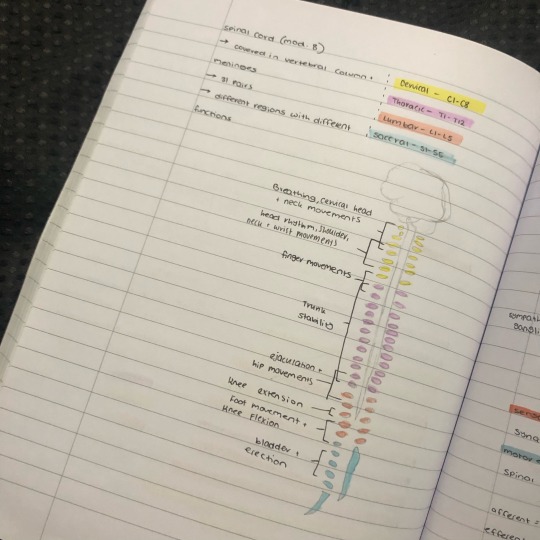 spinal cord (mod 8)
→ covered in vertebral column +
meninges
→ 31 pairs
→ different regions with different
functions
Cervical - C1-C8
Thoracic - T1-T12
Lumbar - L1-L5
Saccral - S1-S5
Breathing, cervical head
+ neck movements
head rhythm, shoulder,
neck + wrist movements
finger movements
Trunk
stability
ejaculation +
hip movements
Knee extension
Foot movement +
Knee Flexion
bladder +
erection
motor
spinal
afferent =